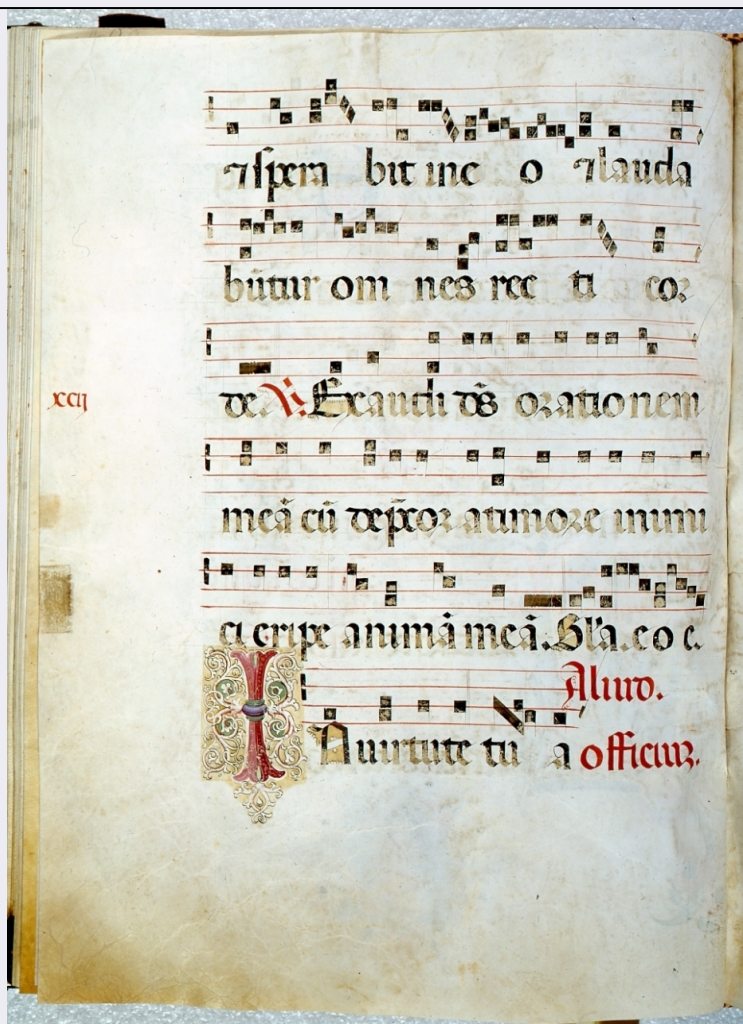 ⁊ spera bit in e o ⁊ lauda
būtur om nes rec ti coꝛ
de. ℣. Exaudi dn̄s oꝛationem
xcij
meā cū depꝛecoꝛ a timoꝛe inimi
ci eripe animā meā. Gl'a. e o e.
Aliud.
IN uirtute tu a officiuꝫ.